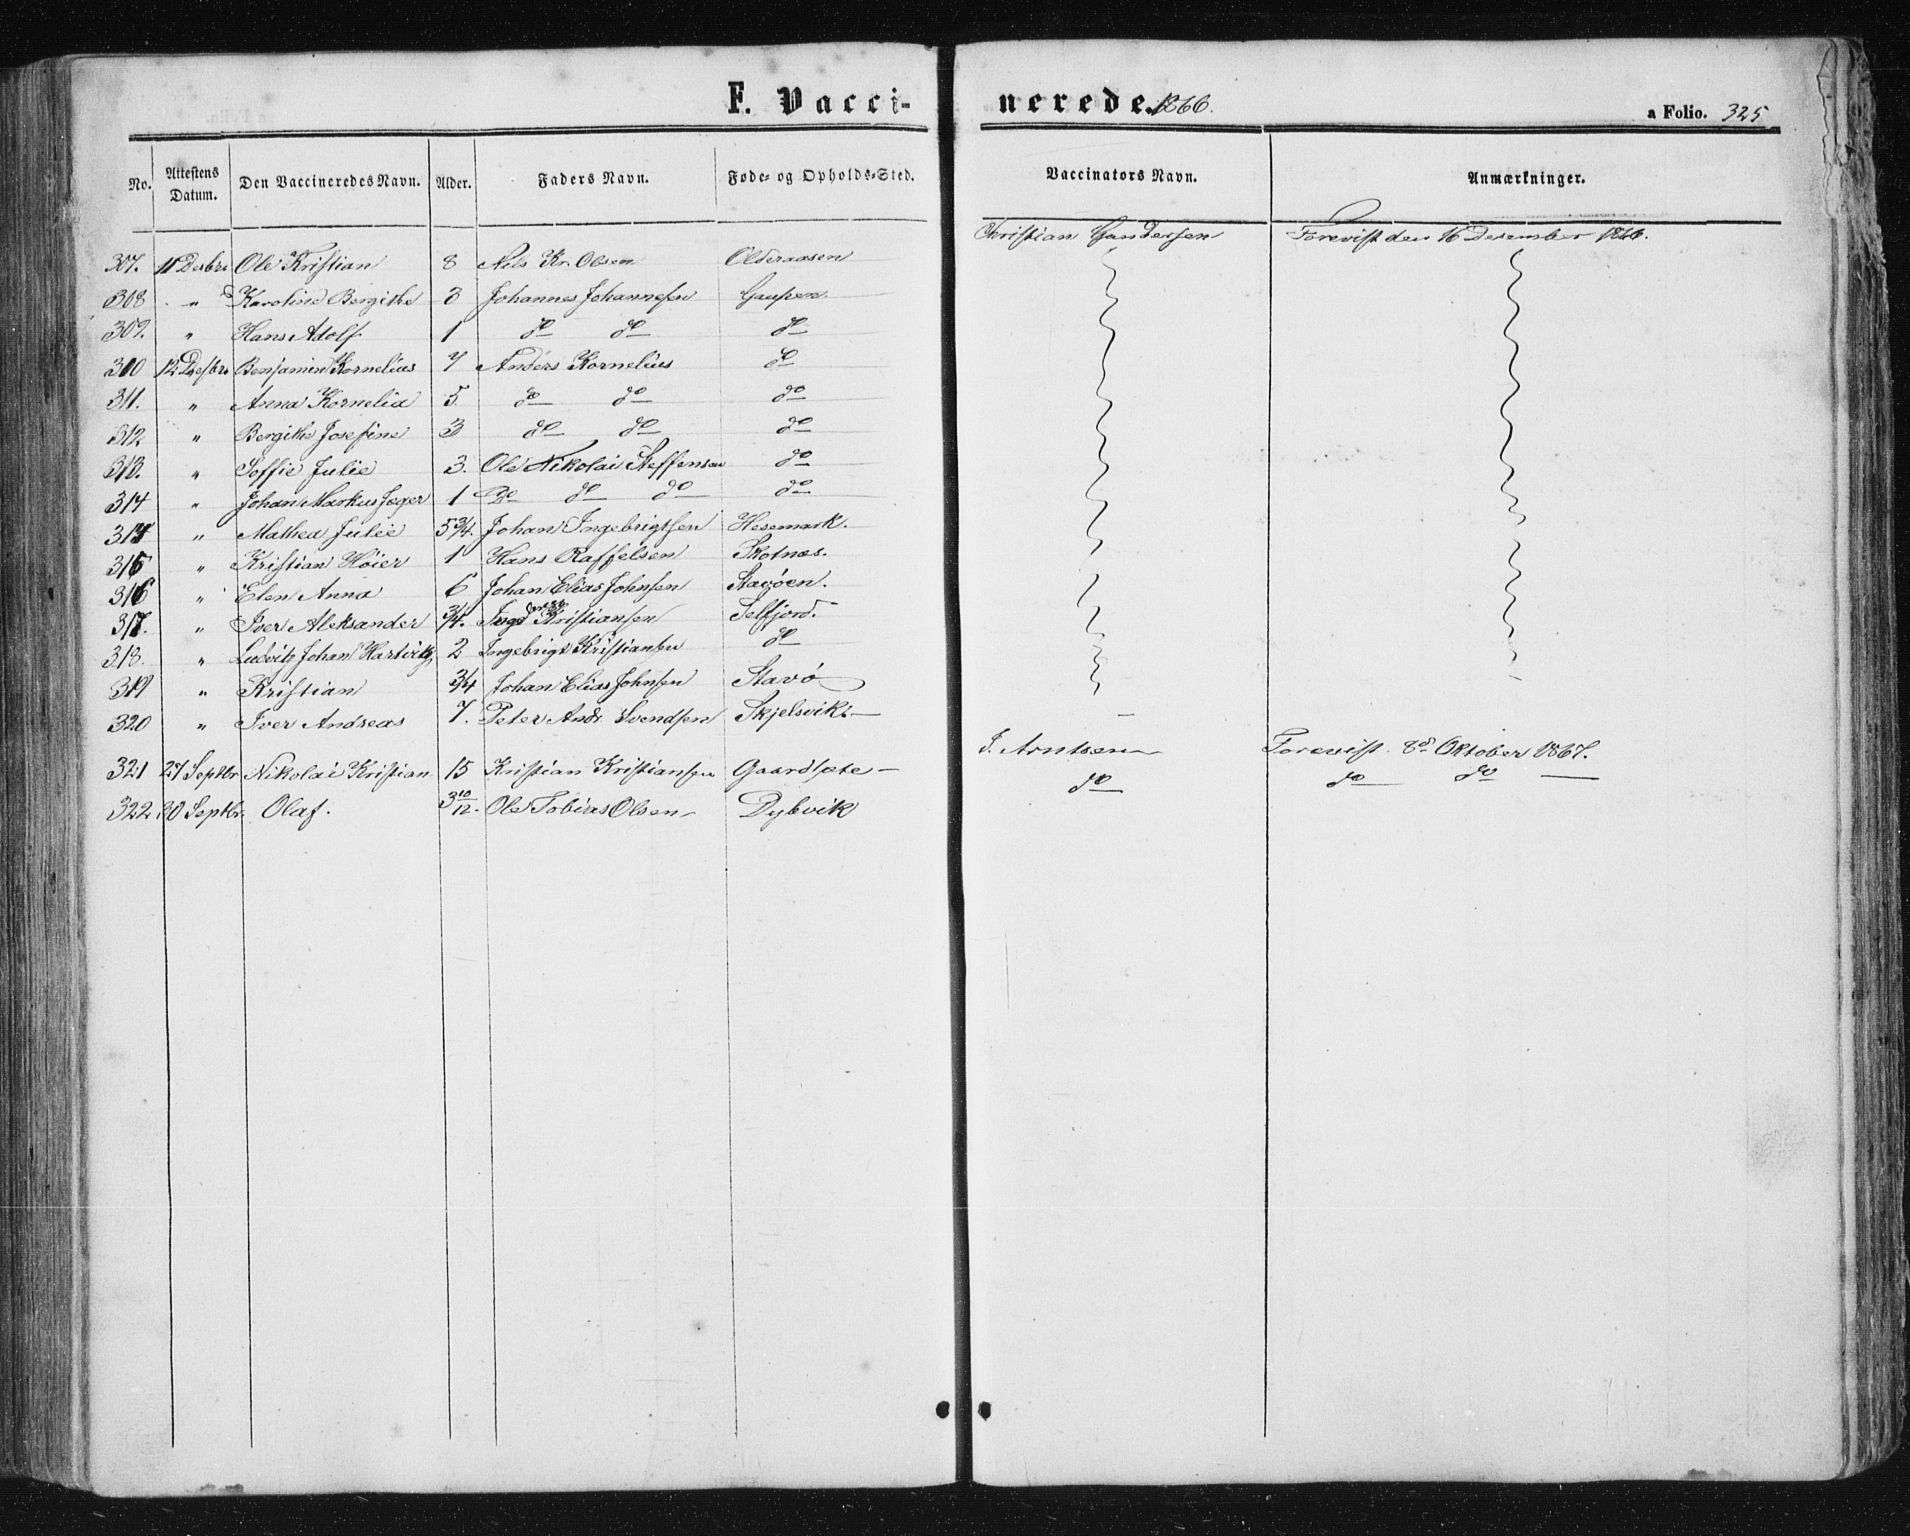 F. Vaccinerede. 1866. a Folio. 325
No. Attestens Datum. Den Vaccineredes Navn. Alder. Faders Navn. Føde- og Opholds-Sted. Vaccinators Navn. Anmærkninger.
307. 11 Desbr Ole Kristian 8 Nils Kr. Olsen Olderaasen Christian Gundersen Forevist den 16 December 1866.
308 " Karoline Bergithe 3 Johannes Johannesen Gaupen.
309. " Hans Adolf 1 do do do
310 12 Desbr Benjamin Kornelius 7 Anders Kornelius do
311. " Anna Kornelia 5 do do do
312 " Bergithe Josefine 3 do do do
313. " Soffie Julie 3. Ole Nikolai Steffensen do
314 " Johan Markus Jæger 1 Do do do do
315 " Mathea Julie 5 3/4. Johan Ingebrigtsen Hesemark.
316 " Kristian Høier 1 Hans Raffelsen Skotnæs.
316 " Elen Anna 6 Johan Elias Johnsen Stavøen.
317. " Iver Aleksander 3/4. Kristiansen Selfjord.
318. " Ludvik Johan Hartvik 2 Ingebrigt Kristiansen do
319 " Kristian 3/4 Johan Elias Johnsen Stavø
320 " Iver Andreas 7. Peter Andr. Svendsen Skjelsvik
321 27 Septbr Nikolai Kristian 15 Kristian Kristiansen Gaardsæte J. Arntsen Forevist 8de Oktober 1867.
322 30 Septbr. Olaf. 3 10/12. Ole Tobias Olsen Dybvik do do do